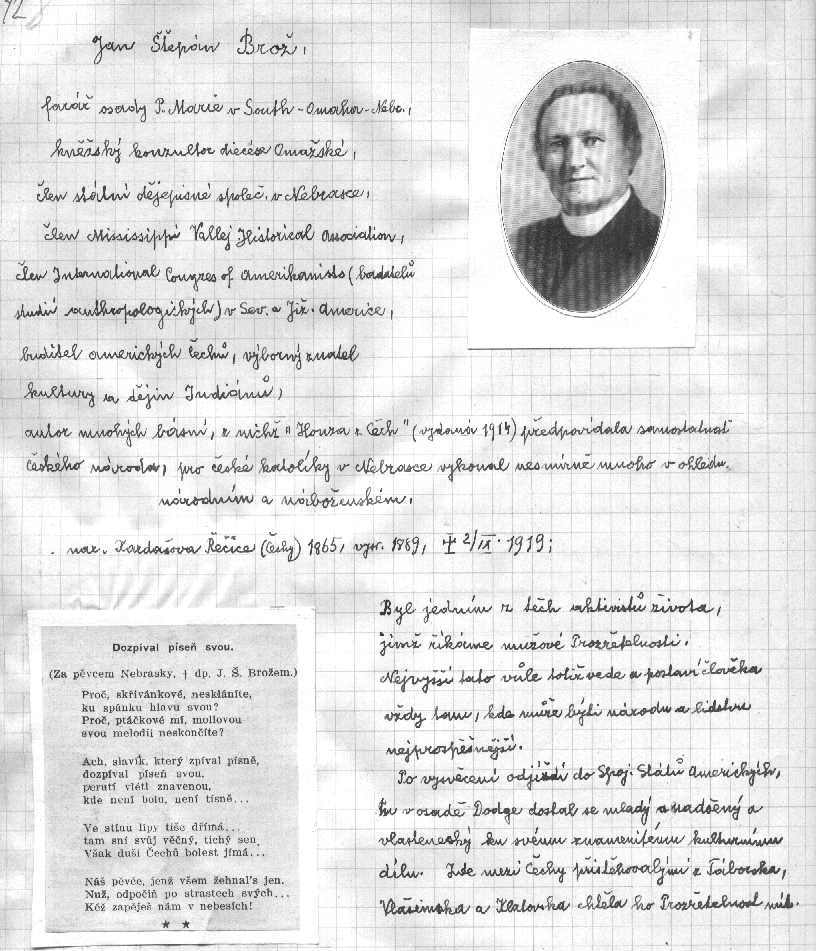 Jan Štěpán Brož,
farář osady P. Marie v South-Omaha-Nebr.,
kněžský konzultor diecése Omažské,
člen státní dějepisné společ. v Nebrasce,
člen Mississippi Vallej Historical Association,
člen International Congres of Amerikanists (badatelů
studií anthropologických) v Sev. a Již. Americe,
buditel amerických Čechů, výborný znatel
kultury a dějin Indiánů,
autor mnohých básní, z nichž "Honza z Čech" (vydaná 1914) předpovídala samostatnost
českého národa, pro české katolíky v Nebrasce vykonal nesmírně mnoho v ohledu
národním a náboženském.
nar. Kardašova Řečice (Čechy) 1865, vysv. 1889, ✝ 2/IX. 1919;
Dozpíval píseň svou.
(Za pěvcem Nebrasky, † dp. J. Š. Brožem.)
Proč, skřivánkové, neskláníte,
ku spánku hlavu svou?
Proč, ptáčkové mí, mollovou
svou melodii neskončíte?
Ach, slavík, který zpíval písně,
dozpíval píseň svou,
perutí vlétl znavenou,
kde není bolu, není tísně...
Ve stínu lípy tiše dřímá...
tam sní svůj věčný, tichý sen,
Však duši Čechů bolest jímá...
Náš pěvče, jenž všem žehnal's jen.
Nuž, odpočiň po strastech svých...
Kéž zapěješ nám v nebesích!
* *
Byl jedním z těch aktivistů života,
jimž říkáme mužové Prozřetelnosti.
Nejvyšší tato vůle totiž vede a postaví člověka
vždy tam, kde může býti národu a lidstvu
nejprospěšnější.
Po vysvěcení odjíždí do Spoj. Států Amerických,
tu v osadě Dodge dostal se mladý a nadšený a
vlastenecký ku svému znamenitému kulturnímu
dílu. Zde mezi Čechy přistěhovalými z Táborska,
Vlašimska a Klatovska chtěla ho Prozřetelnost mít.